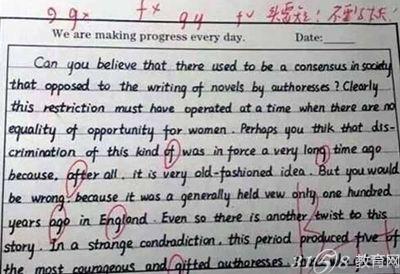 g gx fx gy fv
We are making progress every day. Date:
Can you believe that there used to be a consensus in society
that opposed to the writing of novels by authoresses? Clearly
this restriction must have operated at a time when there are no
equality of opportunity for women. Perhaps you thik that dis-
crimination of this kind of was in force a very long time ago
because, after all, it is very old-fashioned idea. But you would
be wrong, because it was a generally held vew only one hundred
years ago in England. Even so there is another twist to this
story. In a strange condradiction, this period produced five of
the most courageous and gifted authoresses.
教育网